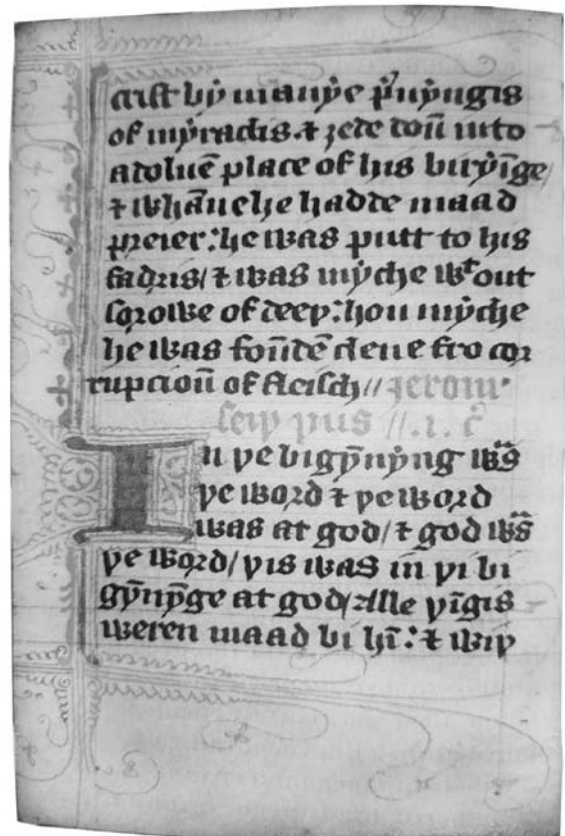 crist bẏ manẏe p̉uẏngis
of mẏraclis. ⁊ ȝede doū into
adoluē place of his birẏīge/
⁊ whāne he hadde maad
preier: he was putt to his
fadris/ ⁊ was mẏche wᵗout
sorowe of deeþ: hou mẏche
he was foūdē clene fro cor
rupcioū of fleisch// jerom·
seiþ þus //.1. c̉
In þe bigȳnẏng wᵃs
þe word ⁊ þe word
was at god/ ⁊ god wᵃs
þe word/ þis was in þi bi
gȳnẏge at god/ Alle þīgis
weren maad bi hī: ⁊ wiþ